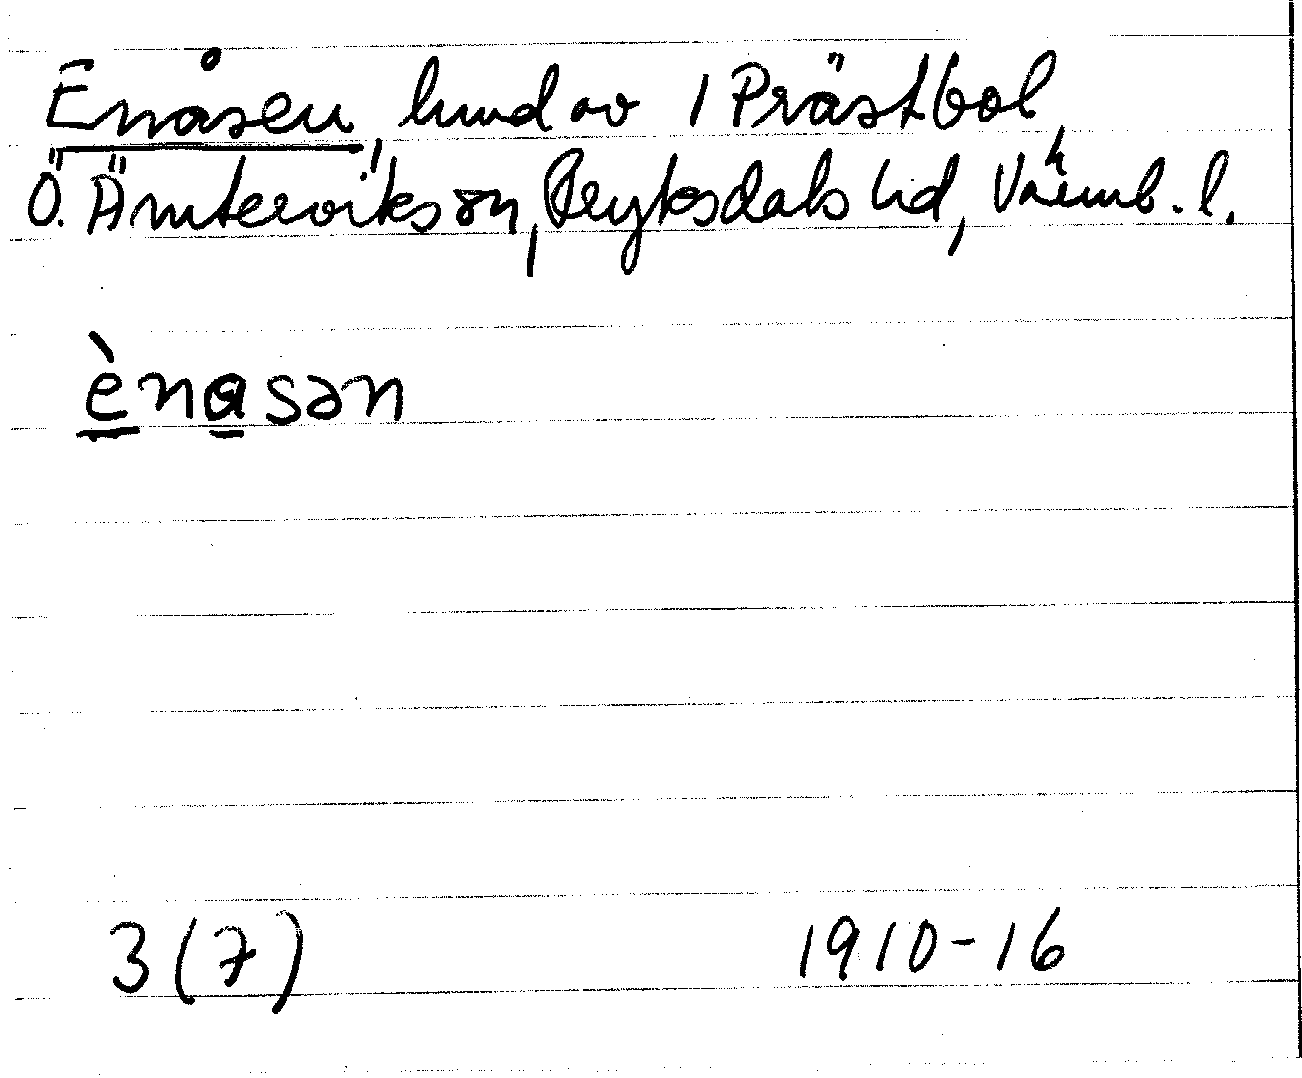 Enåsen, hmd av 1 Prästbol,
Ö. Ämterviks sn, Fryksdals hd, Värmb. l.
ènasən
3 (7) 1910-16